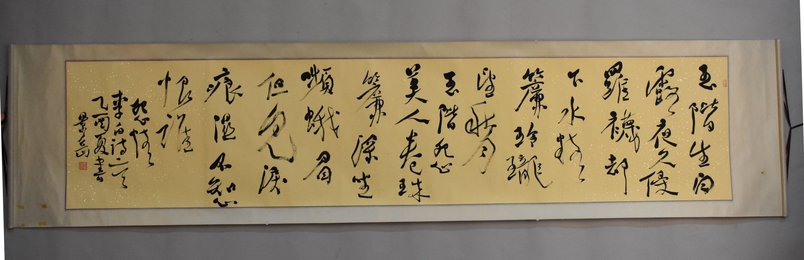 玉階生白
露夜久侵
羅襪却
下水精
簾玲瓏
望秋月
玉階怨
美人卷珠
簾深坐
顰蛾眉
但見淚
痕濕不知心
恨誰
怨情
李白詩二首
乙酉夏書